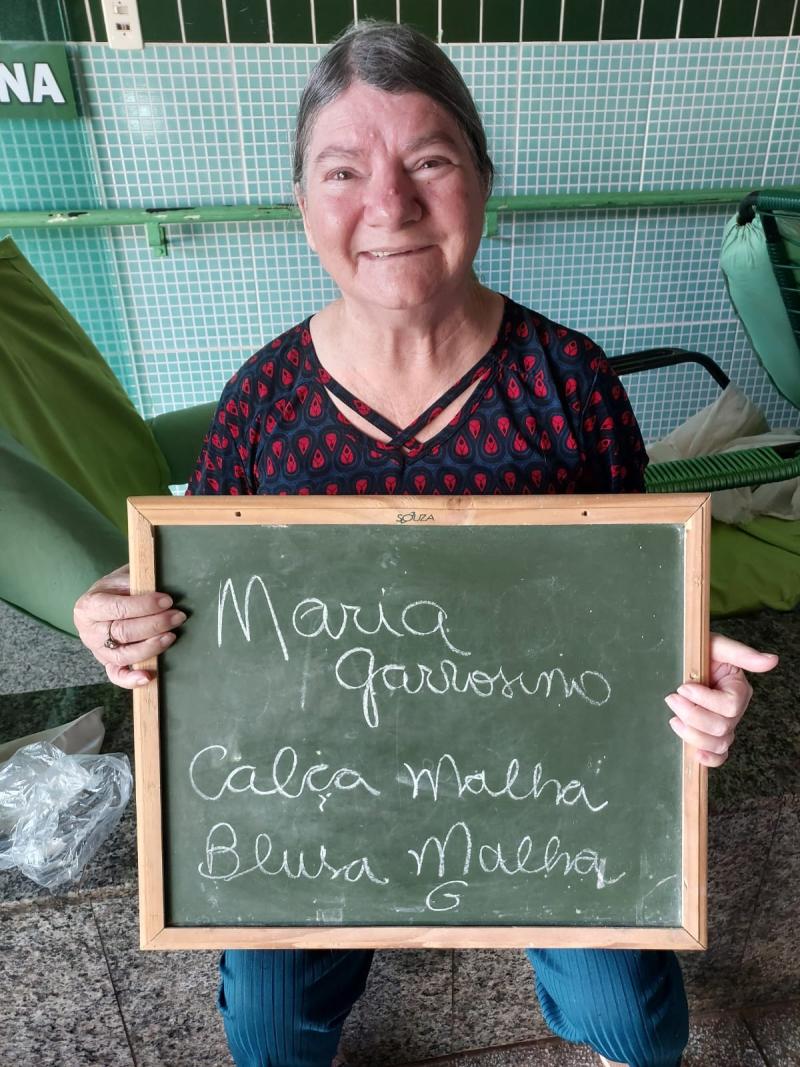 NA
SOUZA
Maria
Garrosino
Calça Malha
Blusa Malha
G